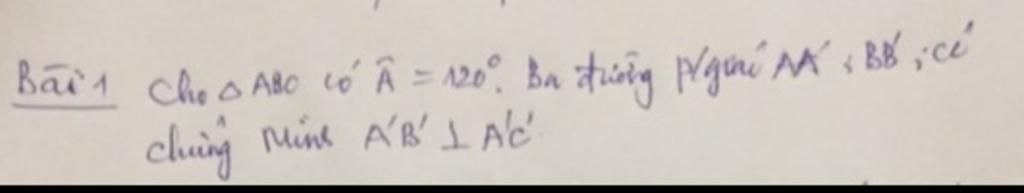 Bài 1 Cho △ ABC có Â = 120°. Ba đường p/giác AA' ; BB' ; CC'
chứng minh A'B' ⊥ A'C'